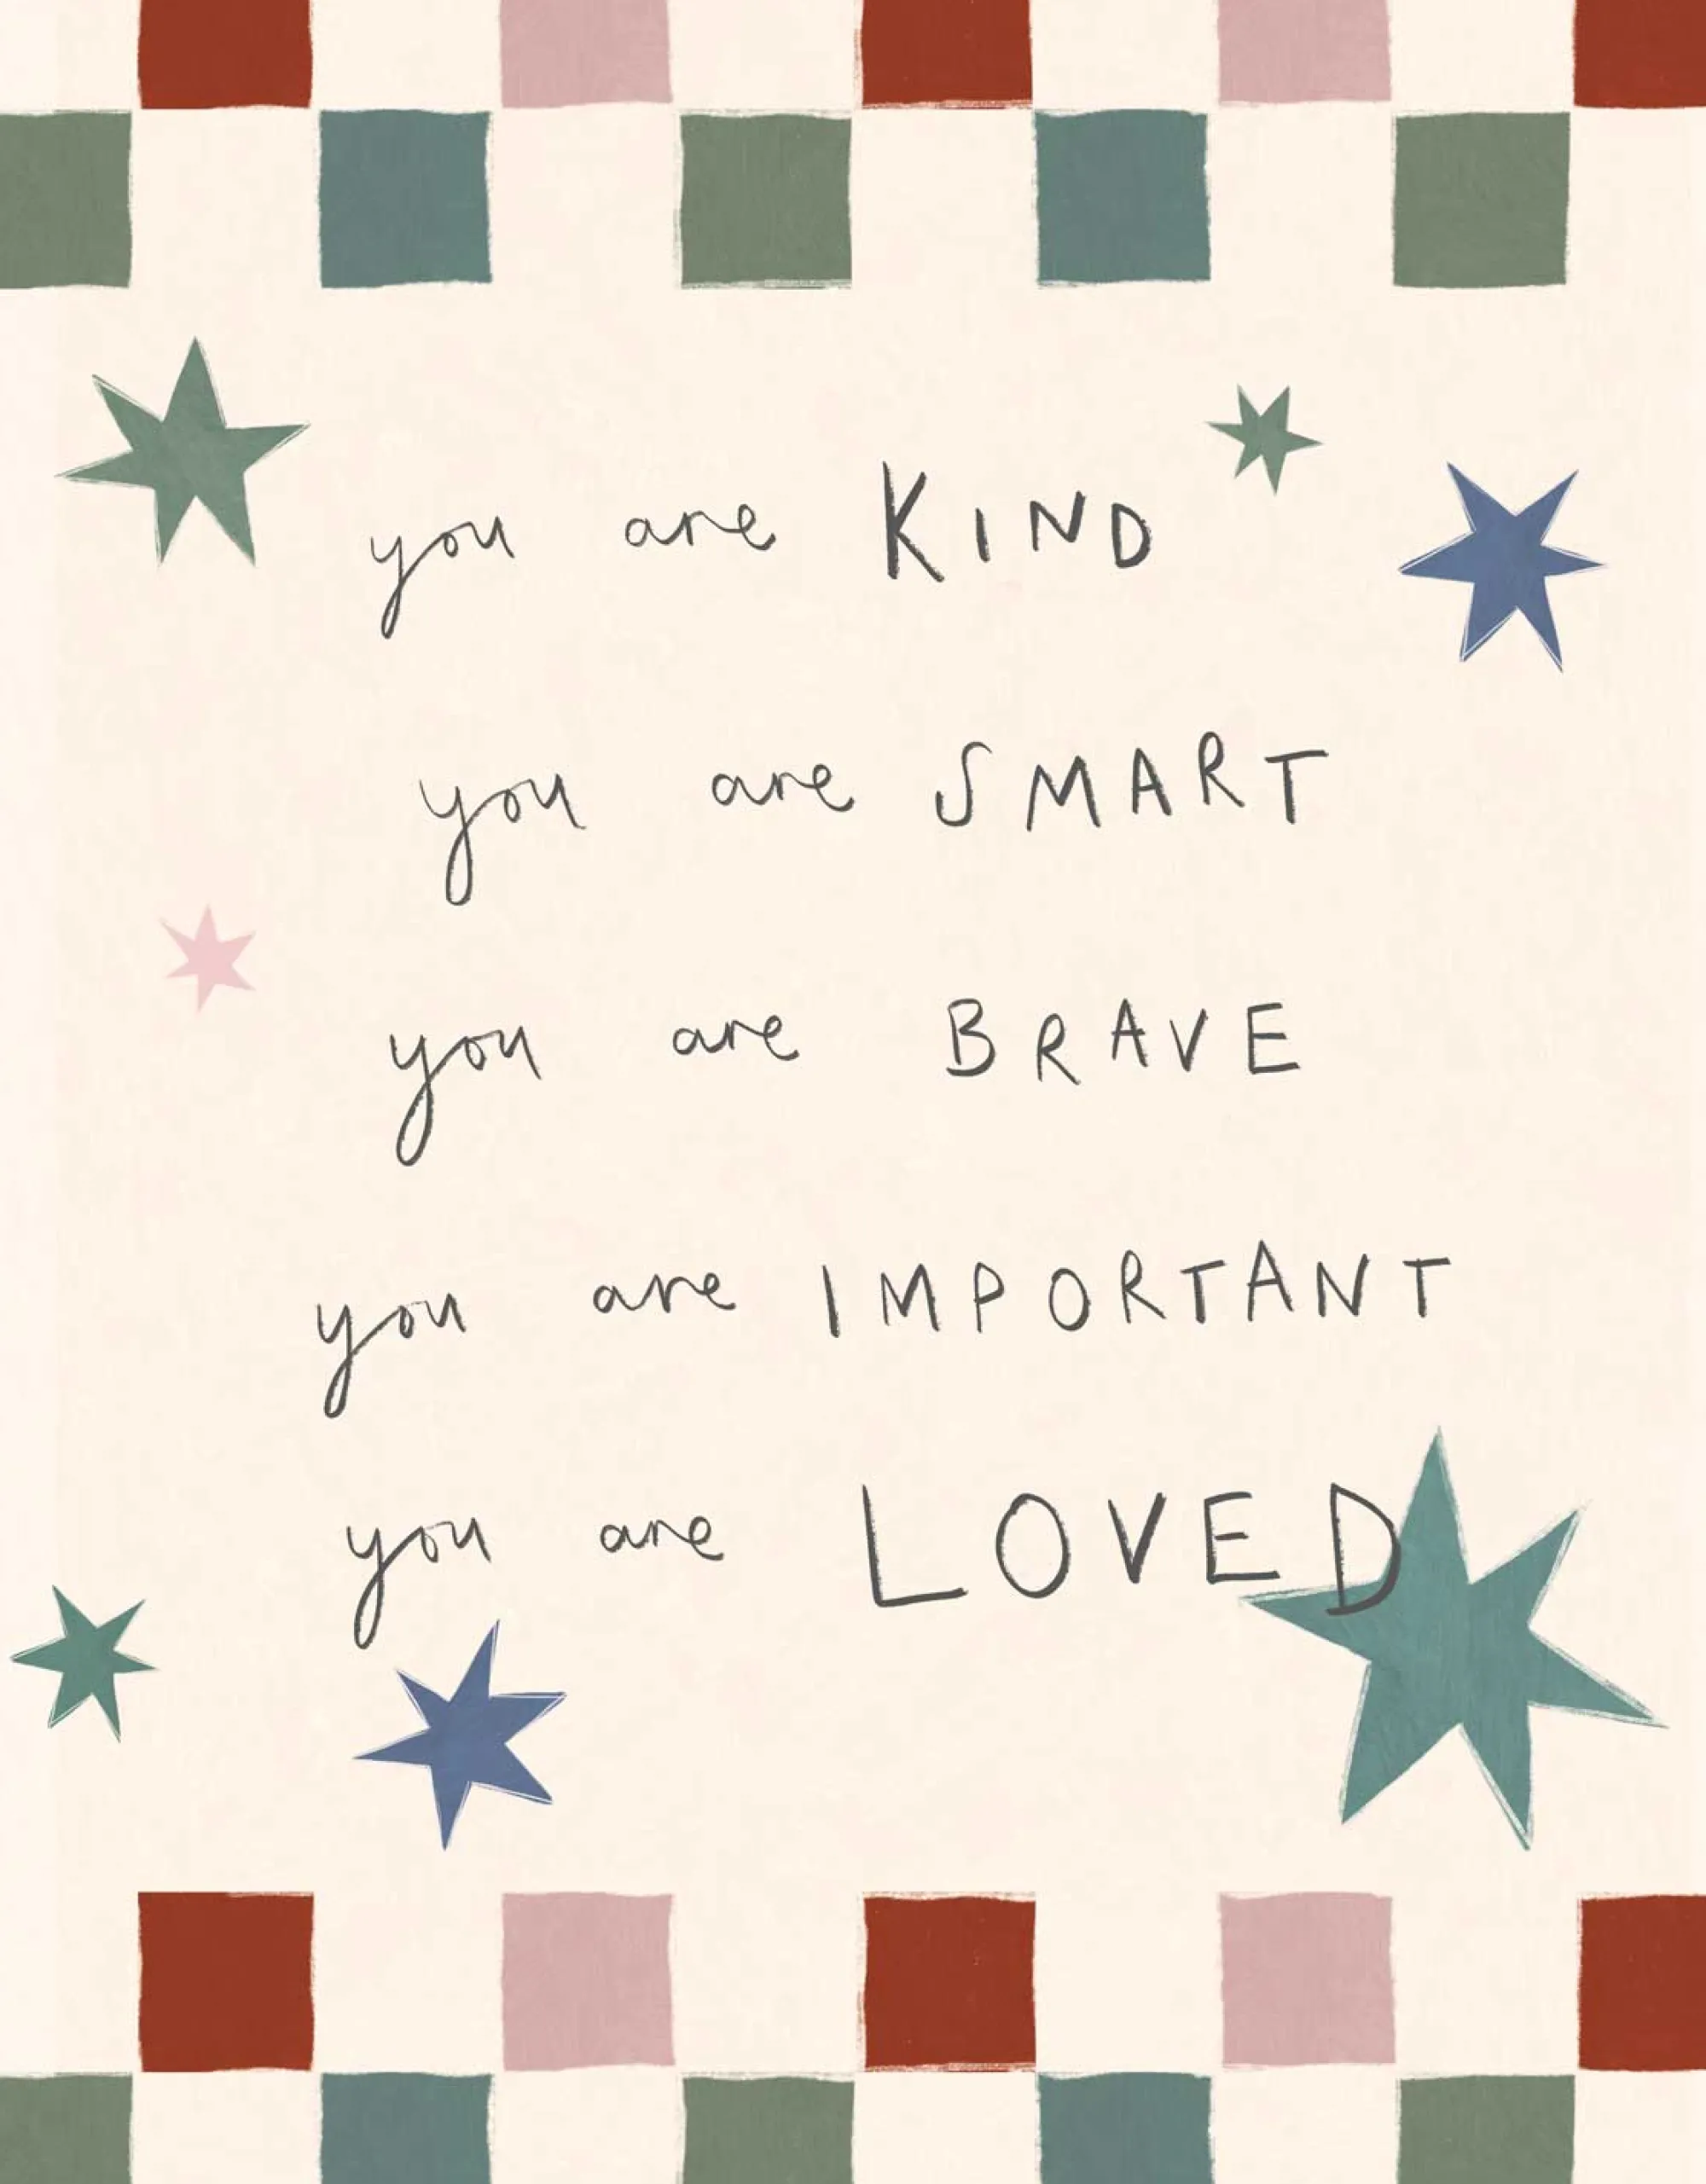 you are KIND
you are SMART
you are BRAVE
you are IMPORTANT
you are LOVED